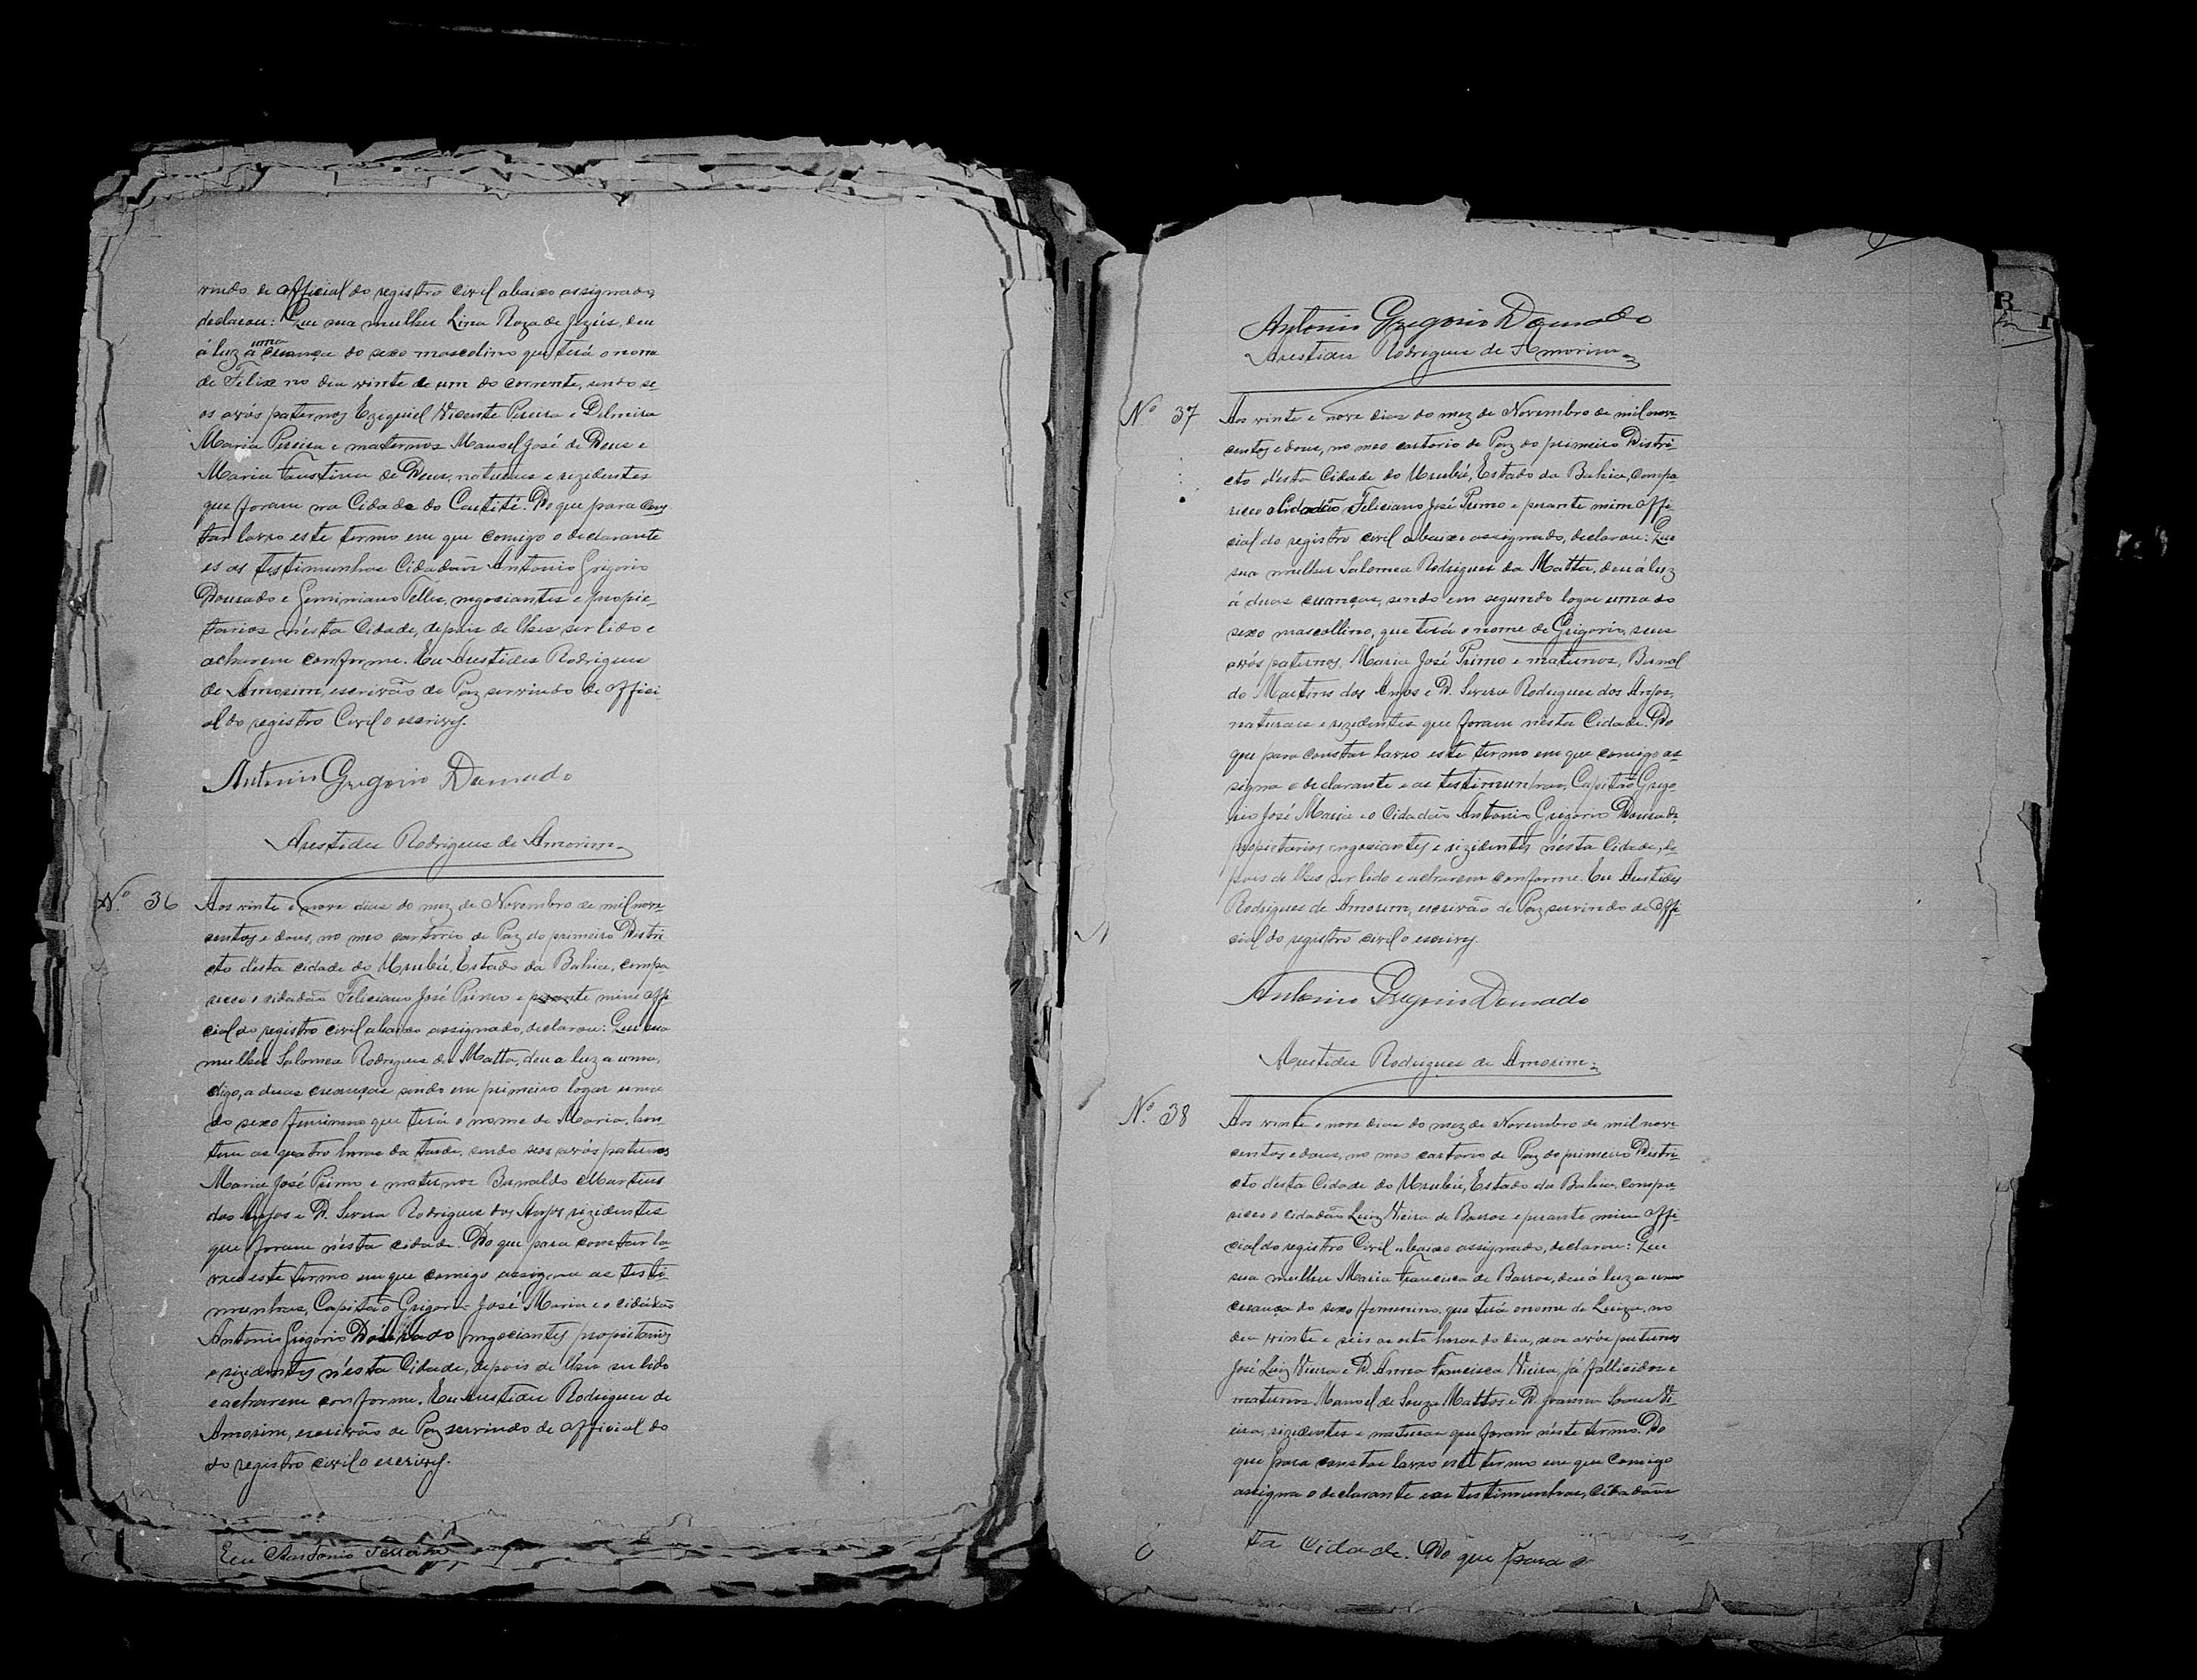 vindo de official do registro civil abaixo assignado,
declarou: Que sua mulher Lina Roza de Jezús, deu
á luz a uma criança do sexo mascolino que terá o nome
de Felix no dia vinte de um do corrente, sendo se
os avós paternos Ezequiel Vicente Pereira e Delmira
Maria Pereira e maternos Manoel José de Deus e
Maria Faustina de Deus, naturaes e rezidentes
que foram na Cidade do Caetité. Do que para cons
tar lavro este termo em que comigo o declarante
es as testimunhas Cidadãos Antonio Grigorio
Dourado e Geminiano Telles, negociantes e proprie-
tarios nésta Cidade, depois de lhes ser lido e
acharem conforme. Eu Arestides Rodrigues
de Amorim, escrivão de Paz servindo de offici
al do registro Civil o escrivy.
Antonio Gregorio Dourado
Arestides Rodrigues de Amorim
Nº 36 Aos vinte e nove dias do mez de Novembro de mil nove-
centos e dous, no meo cartorio de Paz do primeiro Distri
cto d'esta cidade do Urubú, Estado da Bahia, compa
receo o cidadão Feliciano José Primo e perante mim offi
cial do registro civil abaixo assignado, declarou: Que sua
mulher Salomea Rodrigues da Matta, deu a luz a uma,
digo, a duas crianças sendo em primeiro logar uma
do sexo feminino que terá o nome de Maria, hon
tem as quatro horas da tarde, sendo seos avós paternos
Maria José Primo e maternos Bernaldo Martins
dos Anjos e D. Severa Rodrigues dos Anjos rezidentes
que foram nésta cidade. Do que para constar la-
vrei este termo em que comigo assignam as testi-
munhas, Capitão Grigorio José Maria e o cidadão
Antonio Grigorio Dourado negociantes, propietarios
e rezidentes nésta Cidade, depois de lhes ser lido
e acharem conforme. Eu Arestides Rodrigues de
Amorim, escrivão de Paz servindo de official do
do registro civil o escrivy.
Eu Antonio Ferreira
Antonio Gregorio Dourado
Arestides Rodrigues de Amorim
Nº 37 Aos vinte e nove dias do mez de Novembro de mil nove-
centos e dous, no meo cartorio de Paz do primeiro Distri-
cto d'ésta Cidade do Urubú, Estado da Bahia, compa-
receo o Cidadão Feliciano José Primo e perante mim offi-
cial do registro civil abaixo assignado, declarou: Que
sua mulher Salomea Rodrigues da Matta, deu á luz
á duas crianças, sendo em segundo logar uma do
sexo mascollino, que terá o nome de Grigorio, seus
avós paternos, Maria José Primo e maternos, Bernal
do Martins dos Anjos e D. Severa Rodrigues dos Anjos,
naturaes e rezidentes que foram nésta Cidade. Do
que para constar lavro este termo em que comigo as-
signa o declarante e as testimunhas, Capitão Grigo-
rio José Maria e o Cidadão Antonio Grigorio Dourado
propietarios negociantes e rezidentes nésta Cidade, de-
pois de lhes ser lido e acharem conforme. Eu Arestides
Rodrigues de Amorim, escrivão de Paz servindo de offi-
cial do registro civil o escrivy.
Antonio Gregorio Dourado
Arestides Rodrigues de Amorim
Nº 38 Aos vinte e nove dias do mez de Novembro de mil nove
centos e dous, no meo cartorio de Paz do primeiro Distri-
cto désta Cidade do Urubú, Estado da Bahia, compa-
receo o cidadão Luiz Vieira de Barros e perante mim offi-
cial do registro Civil abaixo assignado, declarou: Que
sua mulher Maria Francisca de Barros, deu á luz a uma
criança do sexo femenino, que terá o nome de Luiza, no
dia vinte e seis as oito horas do dia, seos avós paternos
José Luiz Vieira e D. Anna Francisca Vieira, já fallicidos e
maternos Manoel de Souza Mattos e D. Joanna Souza Vi-
eira, rezidentes e naturaes que foram néste termo. Do
que para constar lavro este termo em que comigo
assigna o declarante e as testimunhas, Cidadãos
ta Cidade. Do que para